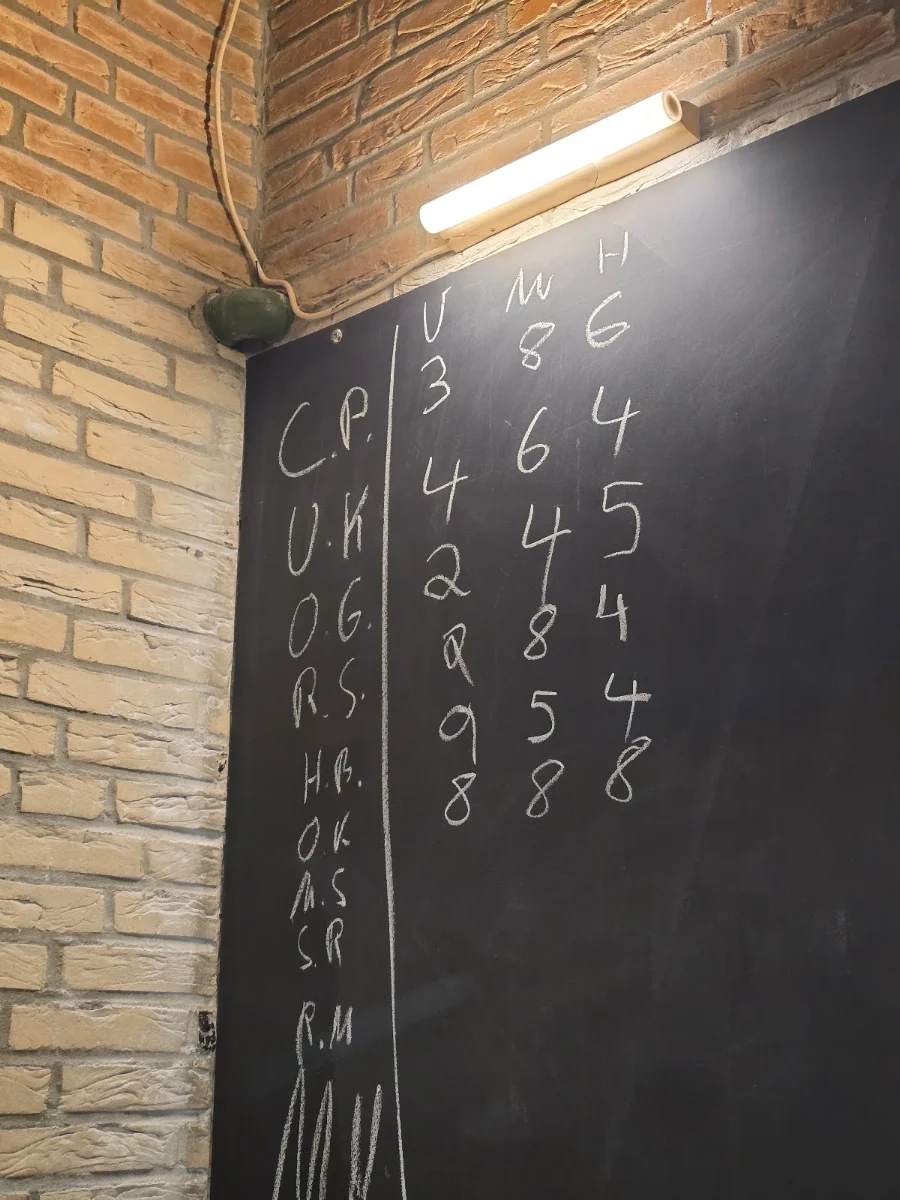 U M H
C.P. 3 8 6
U.K 4 6 4
O.G. 2 4 5
R.S. 2 8 4
H.B. 9 5 4
O.K 8 8 8
M.S
S.R
R.M